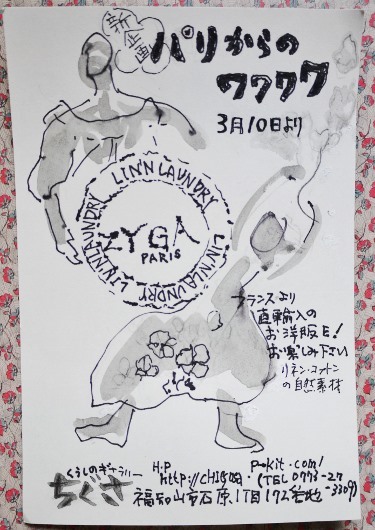 新企画
パリからの
ワワワワ
3月10日より
LIN'N LAUNDRY
LIN'N LAUNDRY
LIN'N LAUNDRY
LIN'N LAUNDRY
ZYGA
PARIS
フランスより
直輸入の
お洋服を!
お楽しみ下さい
リネン・コットン
の自然素材
くらしのギャラリー
ちぐさ
H.P
p-kit.com/
(TEL 0773-27-3309)
福知山市石原1丁目172番地